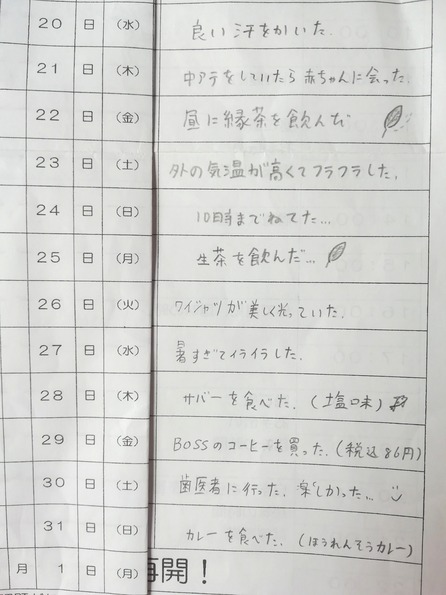 20 日 (水) 良い汗をかいた.
21 日 (木) 中アテをしていたら赤ちゃんに会った.
22 日 (金) 昼に縁茶を飲んだ
23 日 (土) 外の気温が高くてフラフラした.
24 日 (日) 10時までねてた...
25 日 (月) 生茶を飲んだ...
26 日 (火) ワイシャツが美しく光っていた.
27 日 (水) 暑すぎてイライラした.
28 日 (木) サバーを食べた. (塩口味)
29 日 (金) BOSSのコーヒーを買った. (税込86円)
30 日 (土) 歯医者に行った. 楽しかった...
31 日 (日) カレーを食べた. (ほうれんそうカレー)
月 1 日 (月) 再開!